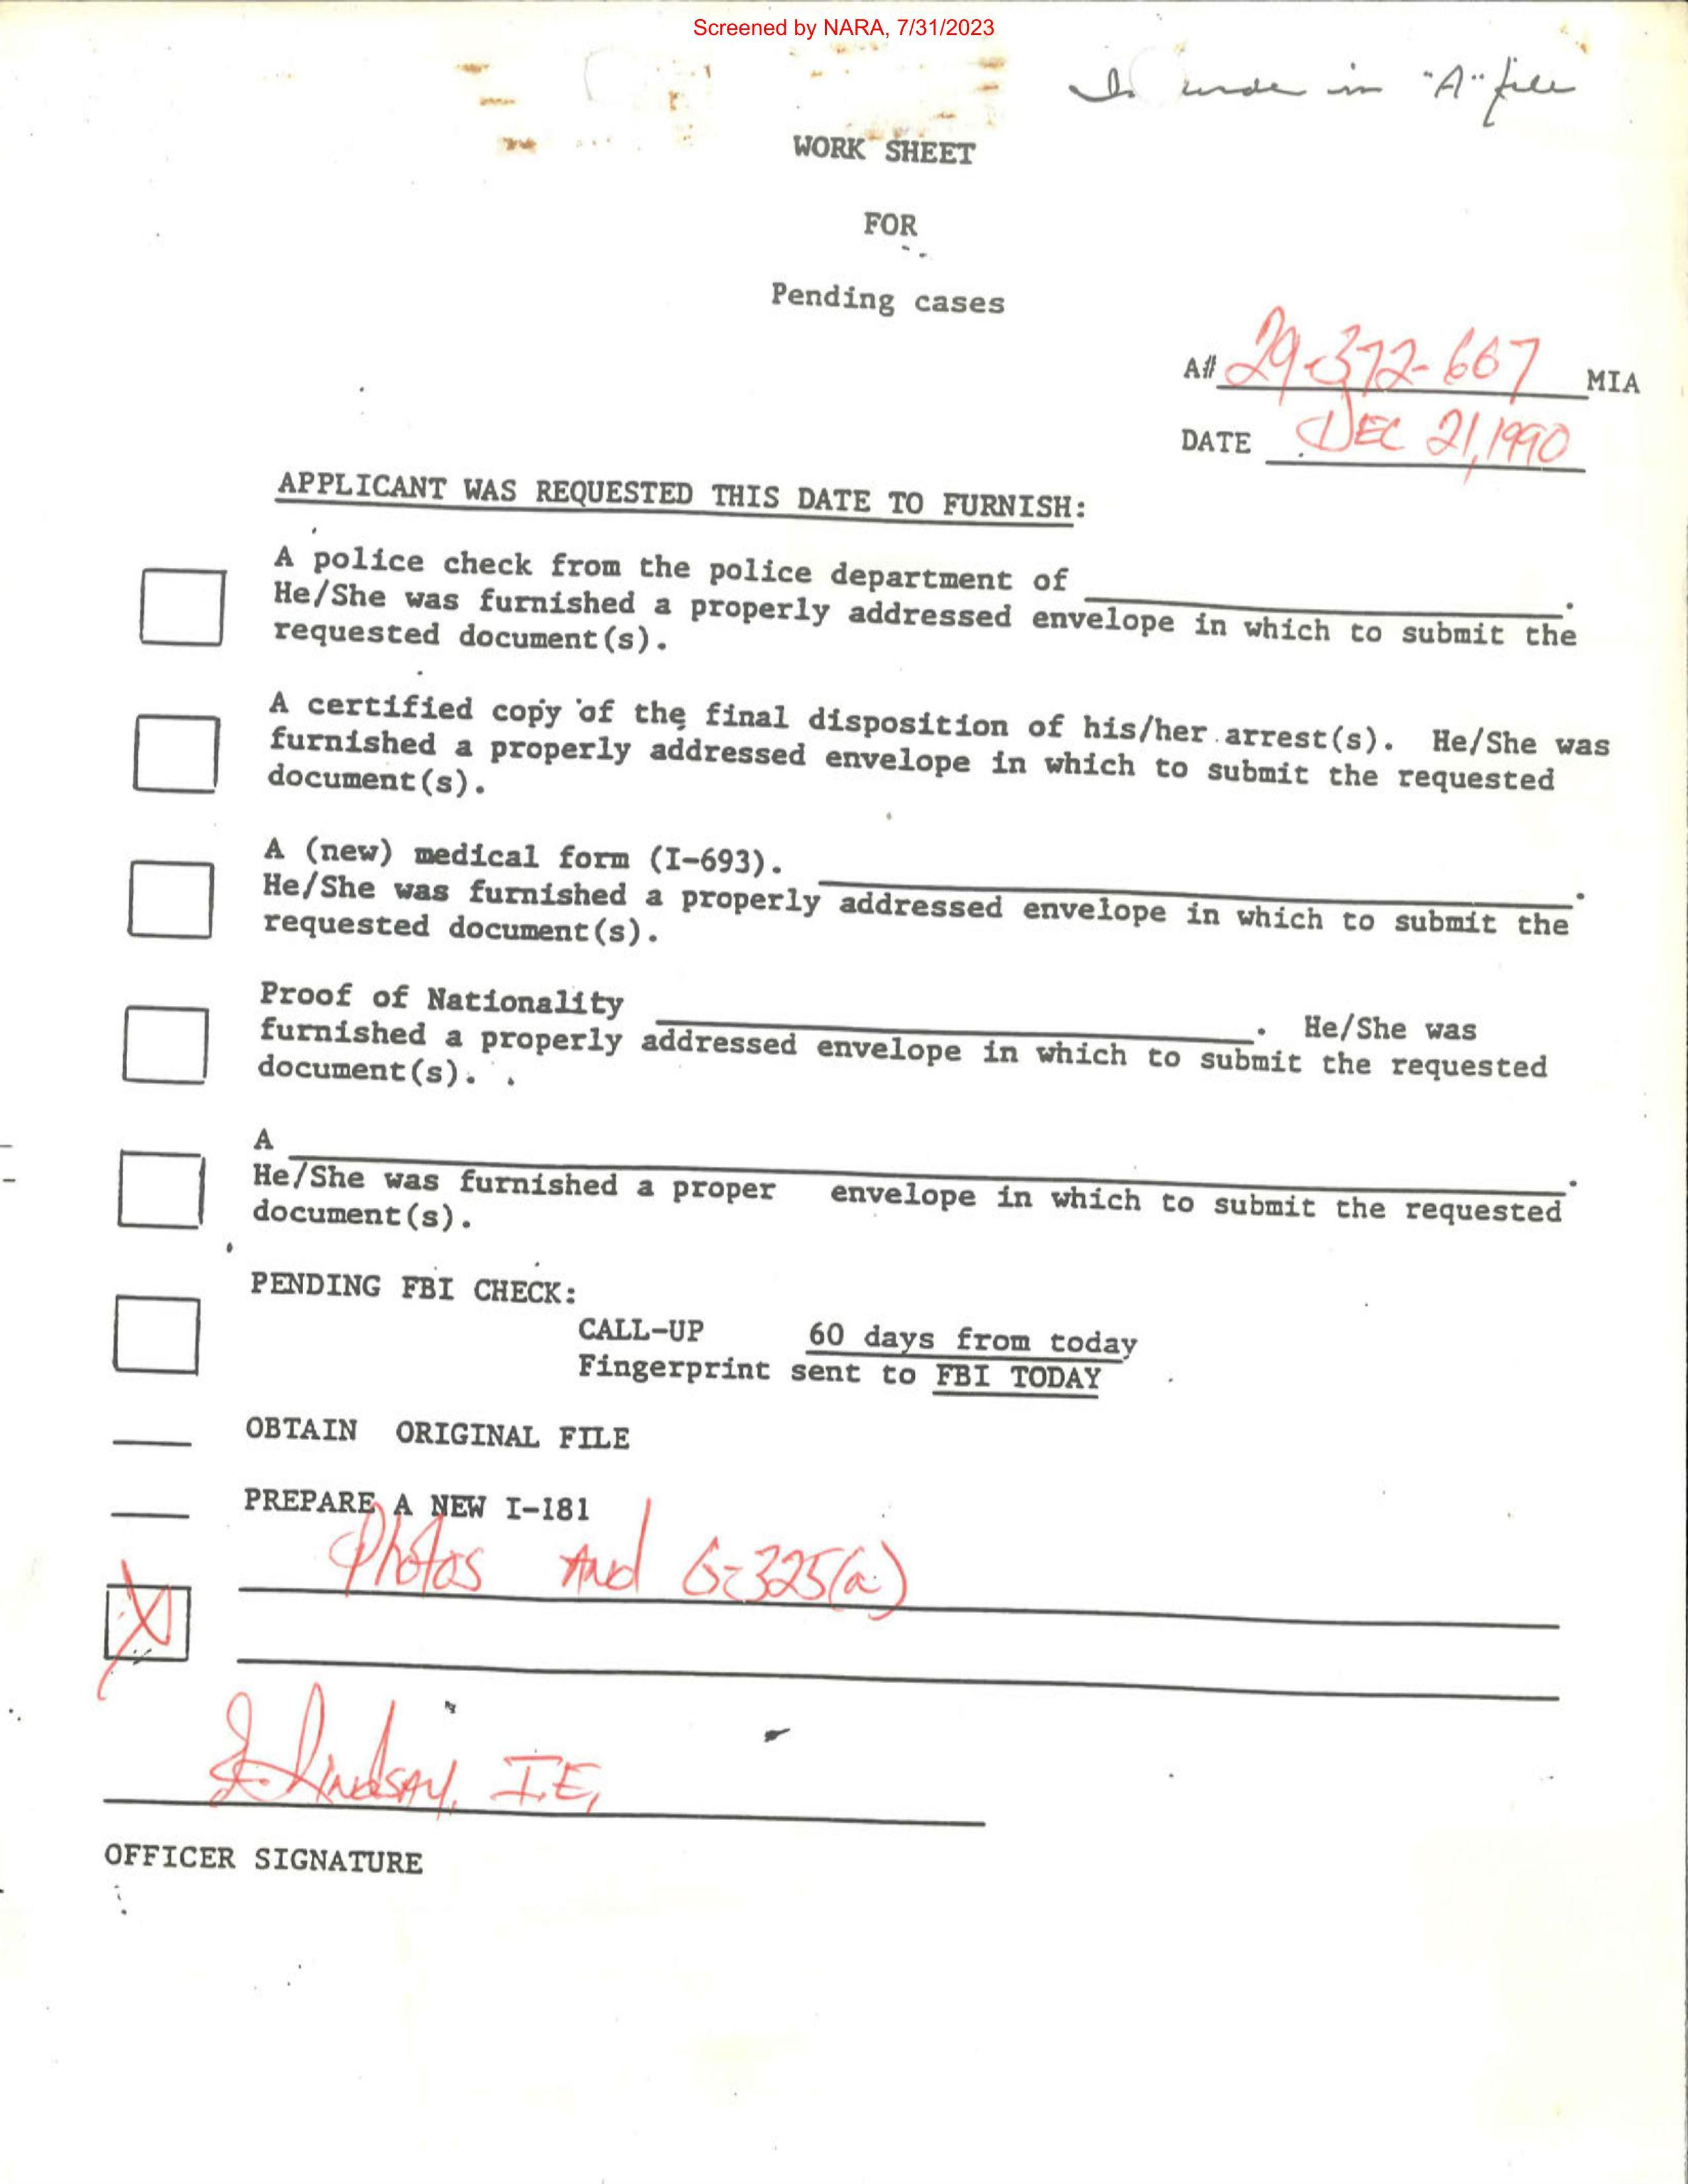 Screened by NARA, 7/31/2023
in "A" file
WORK SHEET
FOR
Pending cases
A# 29-372-667 MIA
DATE DEC 21, 1990
APPLICANT WAS REQUESTED THIS DATE TO FURNISH:
A police check from the police department of .
He/She was furnished a properly addressed envelope in which to submit the
requested document(s).
A certified copy of the final disposition of his/her arrest(s). He/She was
furnished a properly addressed envelope in which to submit the requested
document(s).
A (new) medical form (I-693). .
He/She was furnished a properly addressed envelope in which to submit the
requested document(s).
Proof of Nationality . He/She was
furnished a properly addressed envelope in which to submit the requested
document(s).
A .
He/She was furnished a proper envelope in which to submit the requested
document(s).
PENDING FBI CHECK:
CALL-UP 60 days from today
Fingerprint sent to FBI TODAY
OBTAIN ORIGINAL FILE
PREPARE A NEW I-181
X Photos And G-325(a)
Lindsay, I.E,
OFFICER SIGNATURE